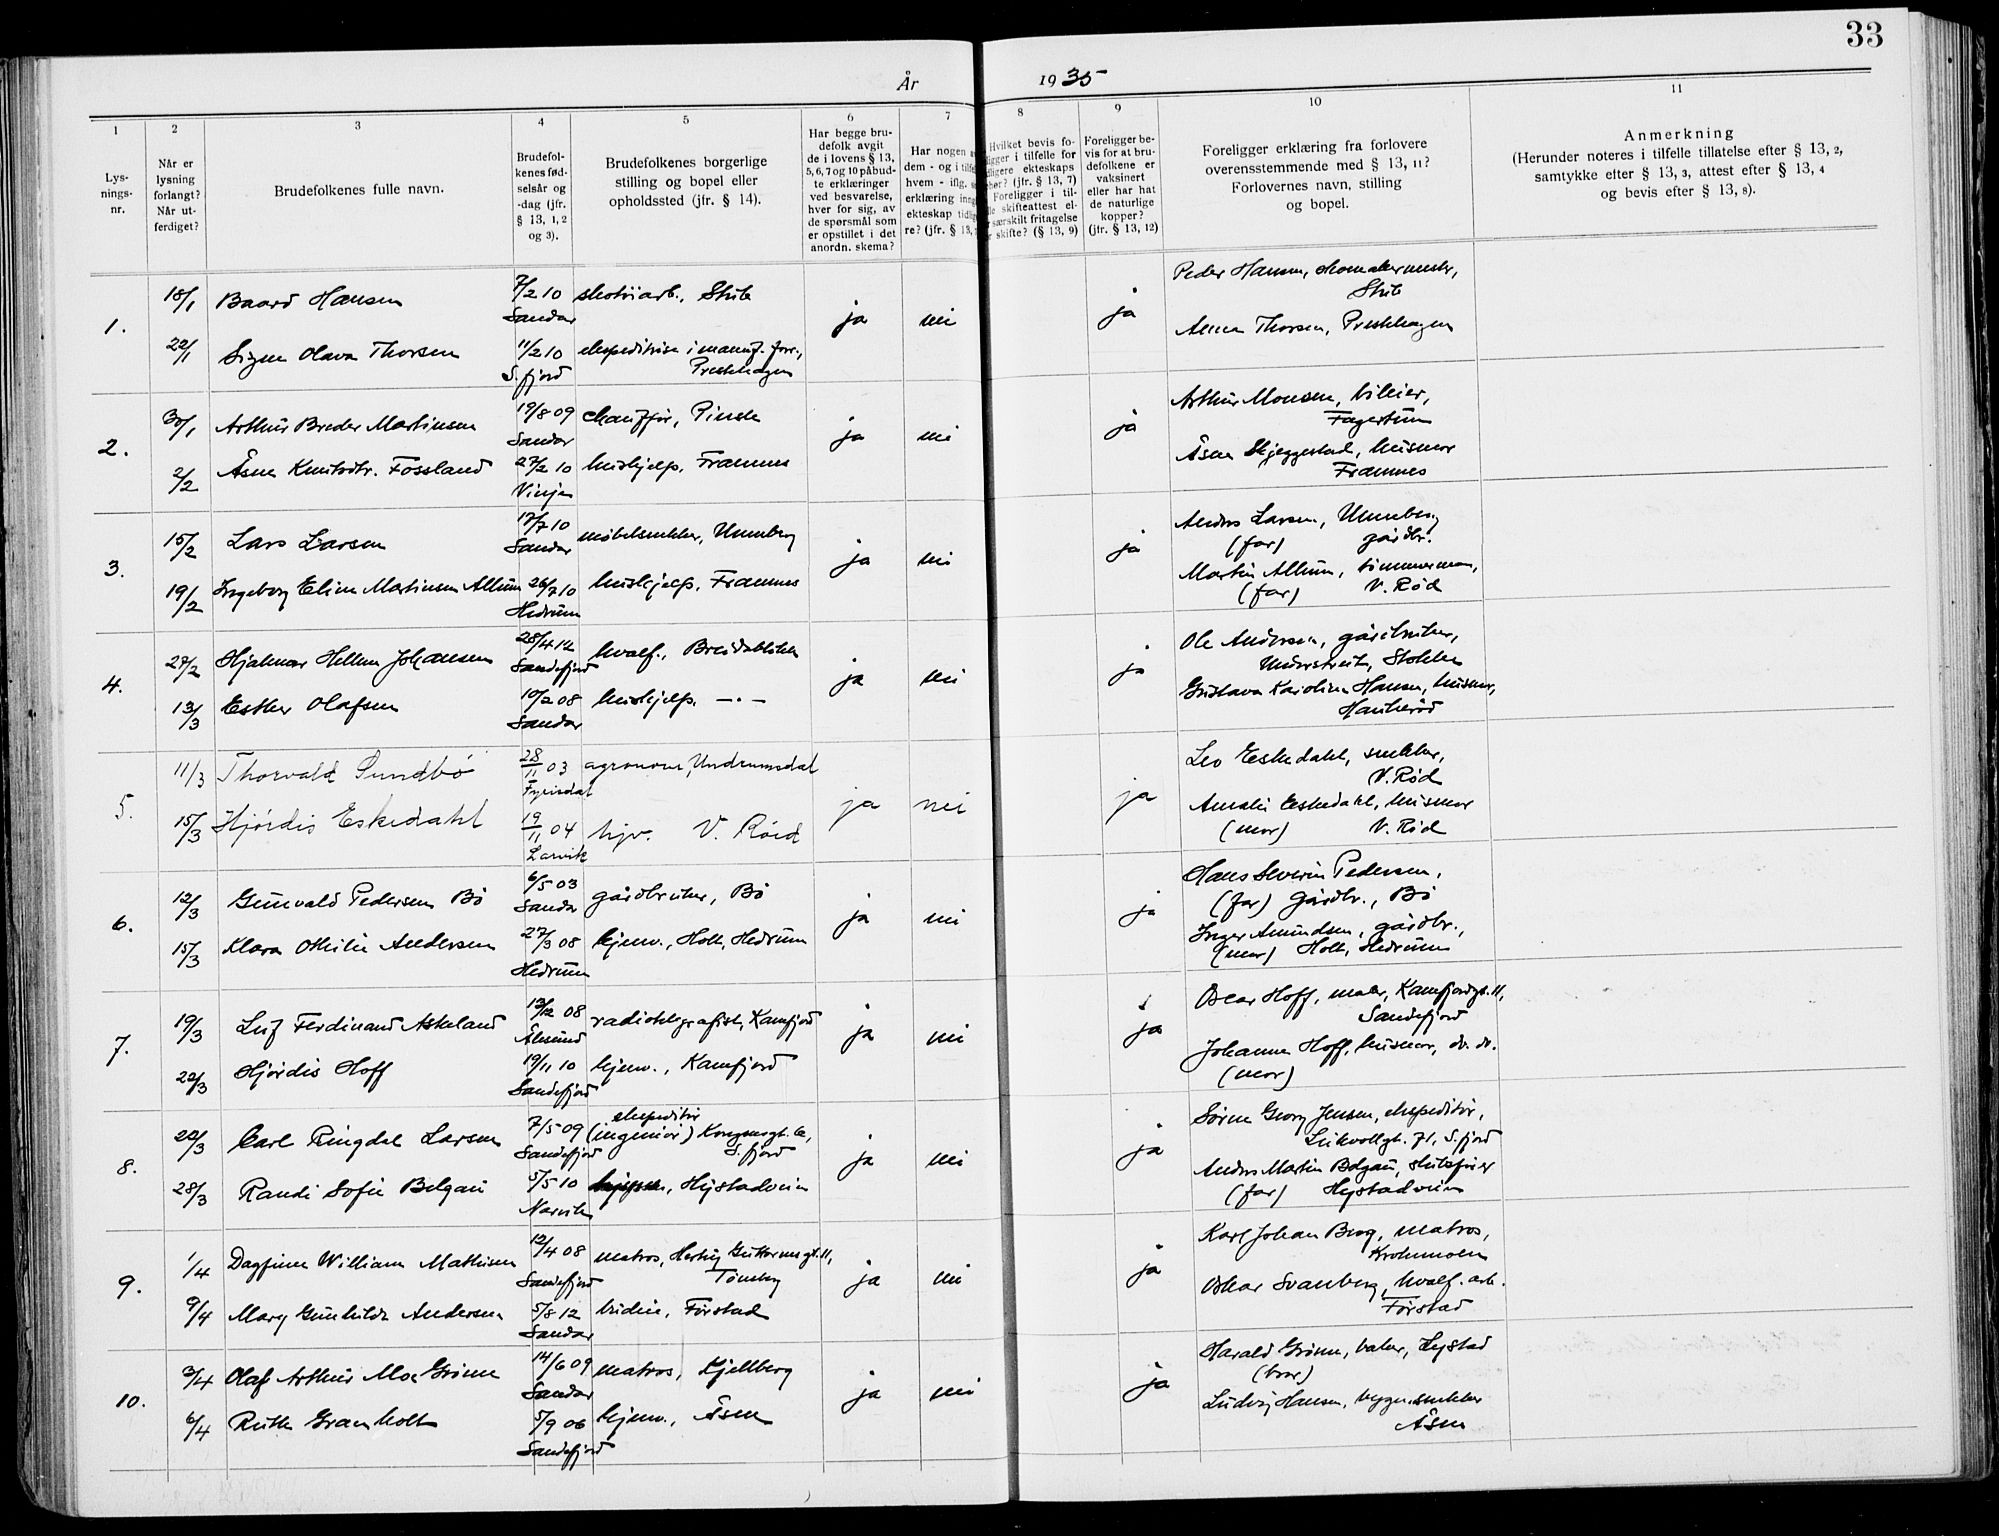 33
År 1935
1 2 3 4 5 6 7 8 9 10 11
Lys-
nings-
nr.
Når er
lysning
forlangt?
Når ut-
ferdiget?
Brudefolkenes fulle navn.
Brudefol-
kenes fød-
selsår og
-dag (jfr.
§ 13, 1, 2
og 3).
Brudefolkenes borgerlige
stilling og bopel eller
opholdssted (jfr. § 14).
Har begge bru-
defolk avgit
de i lovens § 13,
5, 6, 7 og 10 påbud-
te erklæringer
ved besvarelse,
hver for sig, av
de spørsmål som
er opstillet i det
anordn. skema?
Har nogen
dem - og i
hvem - iflg.
erklæring
ekteskap
re? (jfr. § 13,
Hvilket bevis fo-
i tilfelle for
ekteskaps
(jfr. § 13, 7)
Foreligger i til-
skifteattest el-
særskilt fritagelse
skifte? (§ 13, 9)
Foreligger be-
vis for at bru-
defolkene er
vaksinert
eller har hat
de naturlige
kopper?
(jfr. § 13, 12)
Foreligger erklæring fra forlovere
overensstemmende med § 13, 11?
Forlovernes navn, stilling
og bopel.
Anmerkning
(Herunder noteres i tilfelle tillatelse efter § 13, 2,
samtykke efter § 13, 3, attest efter § 13, 4
og bevis efter § 13, 8).
1. 18/1 Baard Hansen 7/2 10 skotøiarb., Skib ja nei ja Peder Hansen, skomakermestr,
Sandar Skib
22/1 Signe Olava Thorsen 11/2 10 ekspeditrise i manuf. forr., Anna Thorsen, Presthagen
S.fjord Presthagen
2. 30/1 Arthur Breder Martinsen 19/8 09 chauffør, Pindsle ja nei ja Arthur Monsen, bileier,
Sandar Fagertun
2/2 Åsne Knutsdtr. Fossland 27/2 10 hushjelp, Framnes Åsne Skjeggestad, husmor
Vinje Framnes
3. 15/2 Lars Larsen 17/7 10 møbelsnekker, Unneberg ja nei ja Anders Larsen, Unneberg
Sandar (far) gårdbr.
19/2 Ingeborg Eline Martinsen Allum 26/7 10 hushjelp, Framnes Martin Allum, tømmermann,
Hedrum (far) V. Rød
4. 27/2 Hjalmar Hellum Johansen 28/4 12 hvalf., Breidablikk ja nei ja Ole Andersen, gårdbruker,
Sandefjord Stokke
13/3 Esther Olafsen 10/2 08 hushjelp. —·— Gustava Karoline Hansen, husmor,
Sandar Haukerød
5. 11/3 Thorvald Sundbø 28/11 03 agronom, Undrumsdal ja nei ja Leo Eskedahl, snekker,
Fyrisdal V. Rød
15/3 Hjørdis Eskedahl 19/11 04 hjv. V. Röed Amalie Eskedahl, husmor
Larvik (mor) V. Rød
6. 12/3 Gunvald Pedersen Bø 6/5 03 gårdbruker, Bø ja nei ja Hans Severin Pedersen,
Sandar (far) gårdbr., Bø
15/3 Klara Othilie Andersen 27/3 08 hjemv., Holt, Hedrum Inger Amundsen, gårdbr.,
Hedrum (mor) Holt, Hedrum
7. 19/3 Leif Ferdinand Askeland 13/12 08 radiotelegrafist, Kamfjord ja nei ja Oscar Hoff, maler, Kamfjordgt. 11,
Ålesund Sandefjord
22/3 Hjördis Hoff 19/11 10 hjemv., Kamfjord Johanne Hoff, husmor, do. do.
Sandefjord (mor)
8. 22/3 Carl Ringdal Larsen 7/5 09 ekspeditør (ingeniør) Kongensgt. 6, ja nei ja Sørne Georg Jensen, ekspeditør,
Sandefjord S.fjord Leikvollgt. 71, S.fjord
28/3 Randi Sofie Belgau 5/5 10 Hystadveien Anders Martin Belgau, skibsfører
Narvik (far) Hystadveien
9. 1/4 Dagfinn William Mathisen 12/4 08 matros, Hertug Guttormsgt. 11, ja nei ja Karl Johan Berg, matros,
Sandefjord Tønsberg Krokemoen
9/4 Mary Gunhilda Andersen 5/8 12 budeie, Førstad Oskar Svanberg, hvalf. arb.
Sandar Førstad
10. 3/4 Olaf Arthur Moe Grønn 14/6 09 matros, Kjellberg ja nei ja Harald Grønn, baker, Hystad
Sandar (bror)
6/4 Ruth Granholt 5/9 06 hjemv., Åsen Ludvig Hansen, byggn.snekker
Sandefjord Åsen